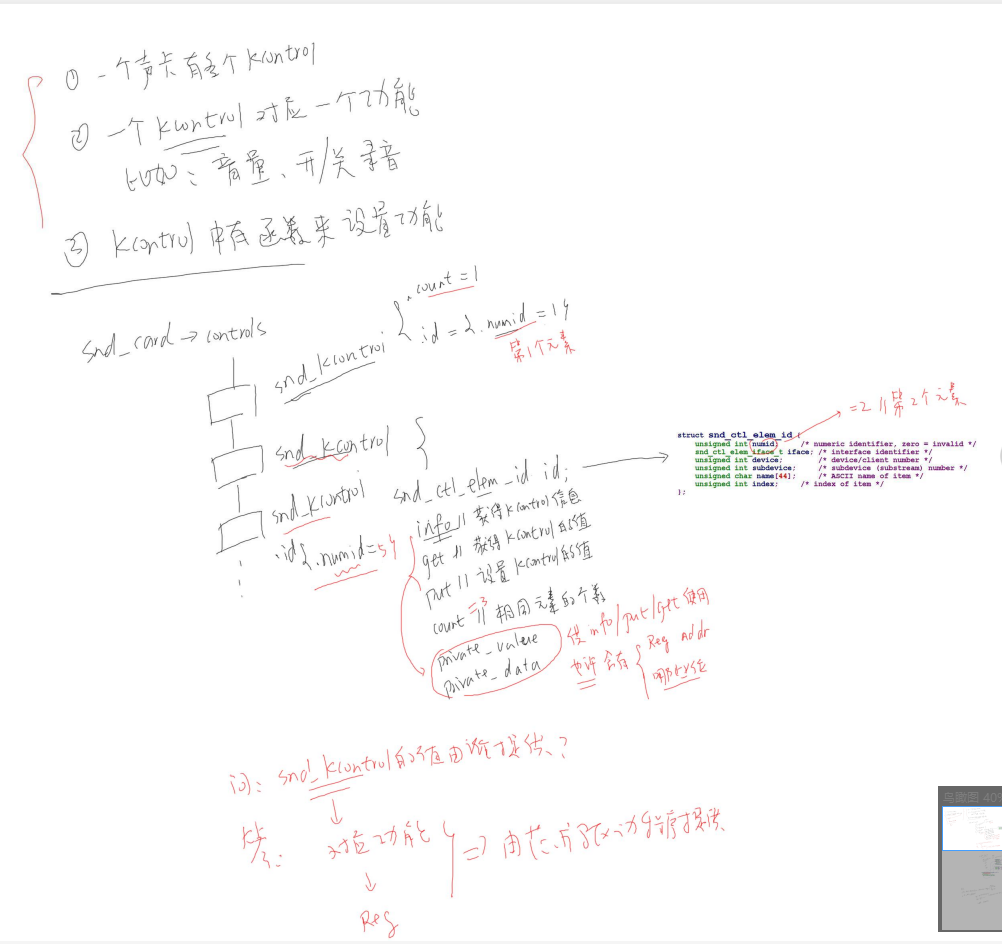 ① 一个声卡有多个kcontrol
② 一个kcontrol对应一个功能
比如：音量、开/关录音
③ kcontrol中有函数来设置功能
snd_card → controls
snd_kcontrol { .count=1
.id = {.numid = 1}
第1个元素
snd_kcontrol {
snd_ctl_elem_id id;
info // 获得kcontrol信息
get // 获得kcontrol的值
put // 设置kcontrol的值
count =3 // 相同元素的个数
private_value
private_data
供info/put/get使用
也许含有 { Reg Addr
哪些位
snd_kcontrol
.id {.numid=5}
=2 // 第2个元素
struct snd_ctl_elem_id {
unsigned int numid; /* numeric identifier, zero = invalid */
snd_ctl_elem_iface_t iface; /* interface identifier */
unsigned int device; /* device/client number */
unsigned int subdevice; /* subdevice (substream) number */
unsigned char name[44]; /* ASCII name of item */
unsigned int index; /* index of item */
};
问：snd_kcontrol的值由谁提供？
答：对应功能 } => 由芯片驱动程序提供
Reg
鸟瞰图 40%